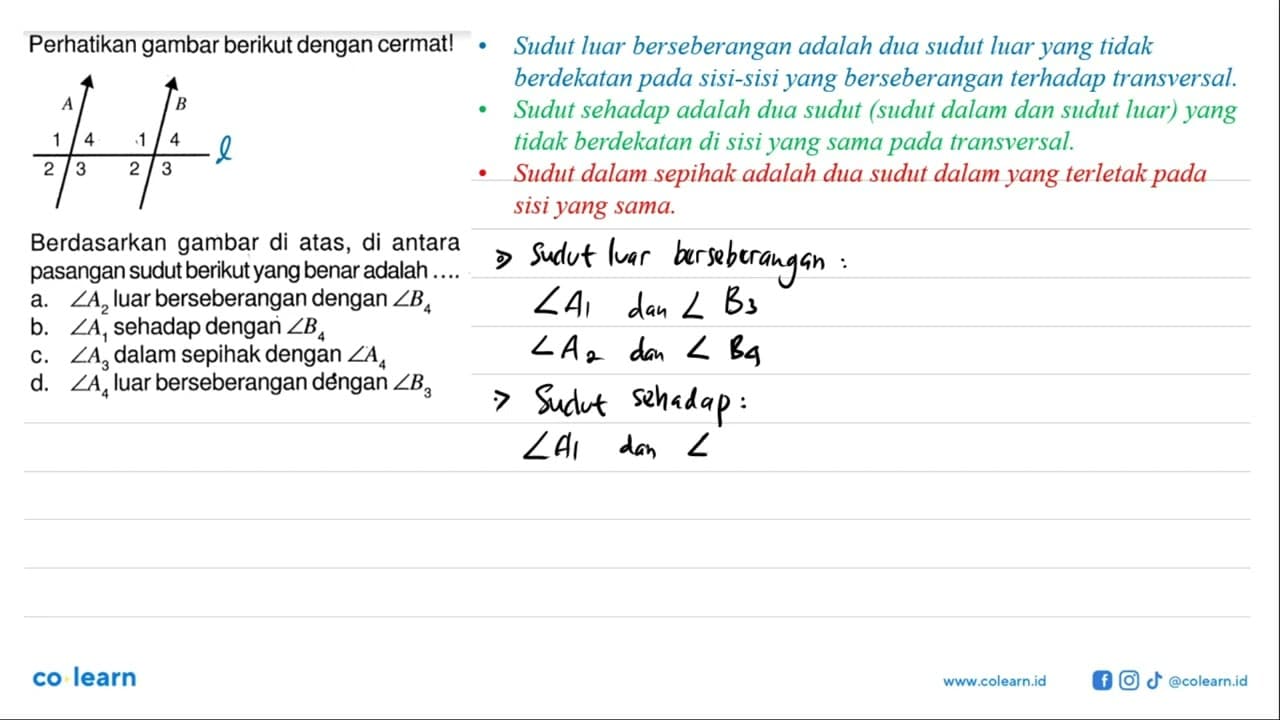 Perhatikan gambar berikut dengan cermat!
A B
1 4 1 4
l
2 3 2 3
Berdasarkan gambar di atas, di antara
pasangan sudut berikut yang benar adalah ....
a. ∠A₂ luar berseberangan dengan ∠B₄
b. ∠A₁ sehadap dengan ∠B₄
c. ∠A₃ dalam sepihak dengan ∠A₄
d. ∠A₄ luar berseberangan dengan ∠B₃
• Sudut luar berseberangan adalah dua sudut luar yang tidak
berdekatan pada sisi-sisi yang berseberangan terhadap transversal.
• Sudut sehadap adalah dua sudut (sudut dalam dan sudut luar) yang
tidak berdekatan di sisi yang sama pada transversal.
• Sudut dalam sepihak adalah dua sudut dalam yang terletak pada
sisi yang sama.
> Sudut luar berseberangan :
∠A₁ dan ∠ B₃
∠A₂ dan ∠ B₄
> Sudut sehadap :
∠A₁ dan ∠
co learn
www.colearn.id
@colearn.id